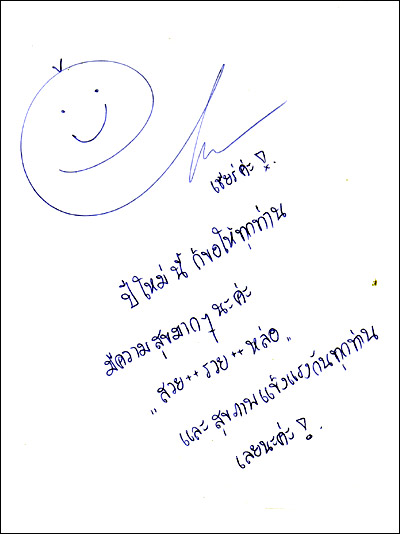 เชียร์ค่ะ !
ปีใหม่นี้ ก็ขอให้ทุกท่าน
มีความสุขมากๆ นะค่ะ
"สวย++รวย++หล่อ"
และ สุขภาพแข็งแรงกันทุกท่าน
เลยนะค่ะ !